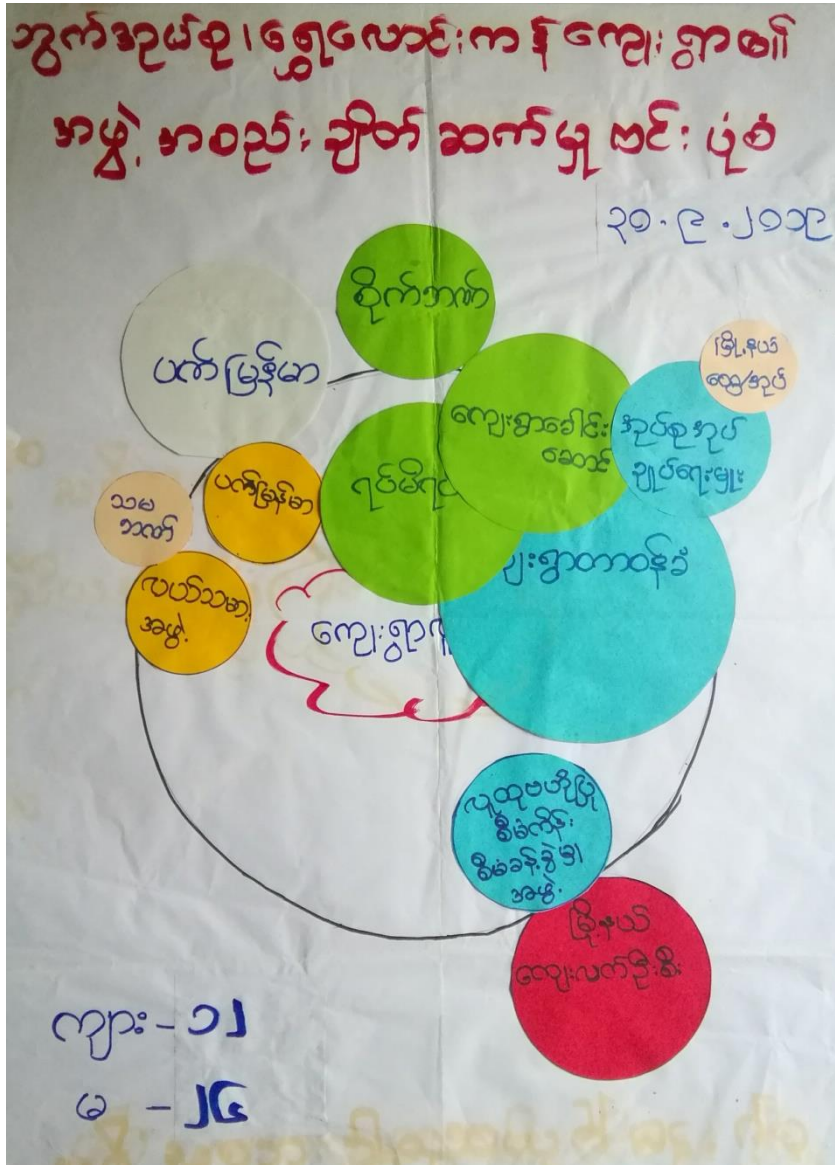 ဘွက်အုယ်စု၊ ရွှေလောင်းကန် ကျေးရွာ၏
အဖွဲ့ အစည်း ချိတ် ဆက်မှု ဗင်း ပုံစံ
၃၀.၉.၂၀၁၉
စိုက်ဘဏ်
ပတ်မြန်မာ
မြို့နယ်
ထွေ/အုပ်
ကျေးရွာခေါင်း
ဆောင်
အုပ်စုအုပ်
ချုပ်ရေးမှူး
ရပ်မိရပ်
ပတ်မြန်မာ
သမ
ဘဏ်
ကျေးရွာတာဝန်ခံ
လယ်သမား
အဖွဲ့
ကျေးရွာ
လူထုဗဟိုပြု
စီမံကိန်း
စီမံခန့်ခွဲမှု
အဖွဲ့
မြို့နယ်
ကျေးလက်ဦးစီး
ကျား - ၁၂
မ - ၂၆